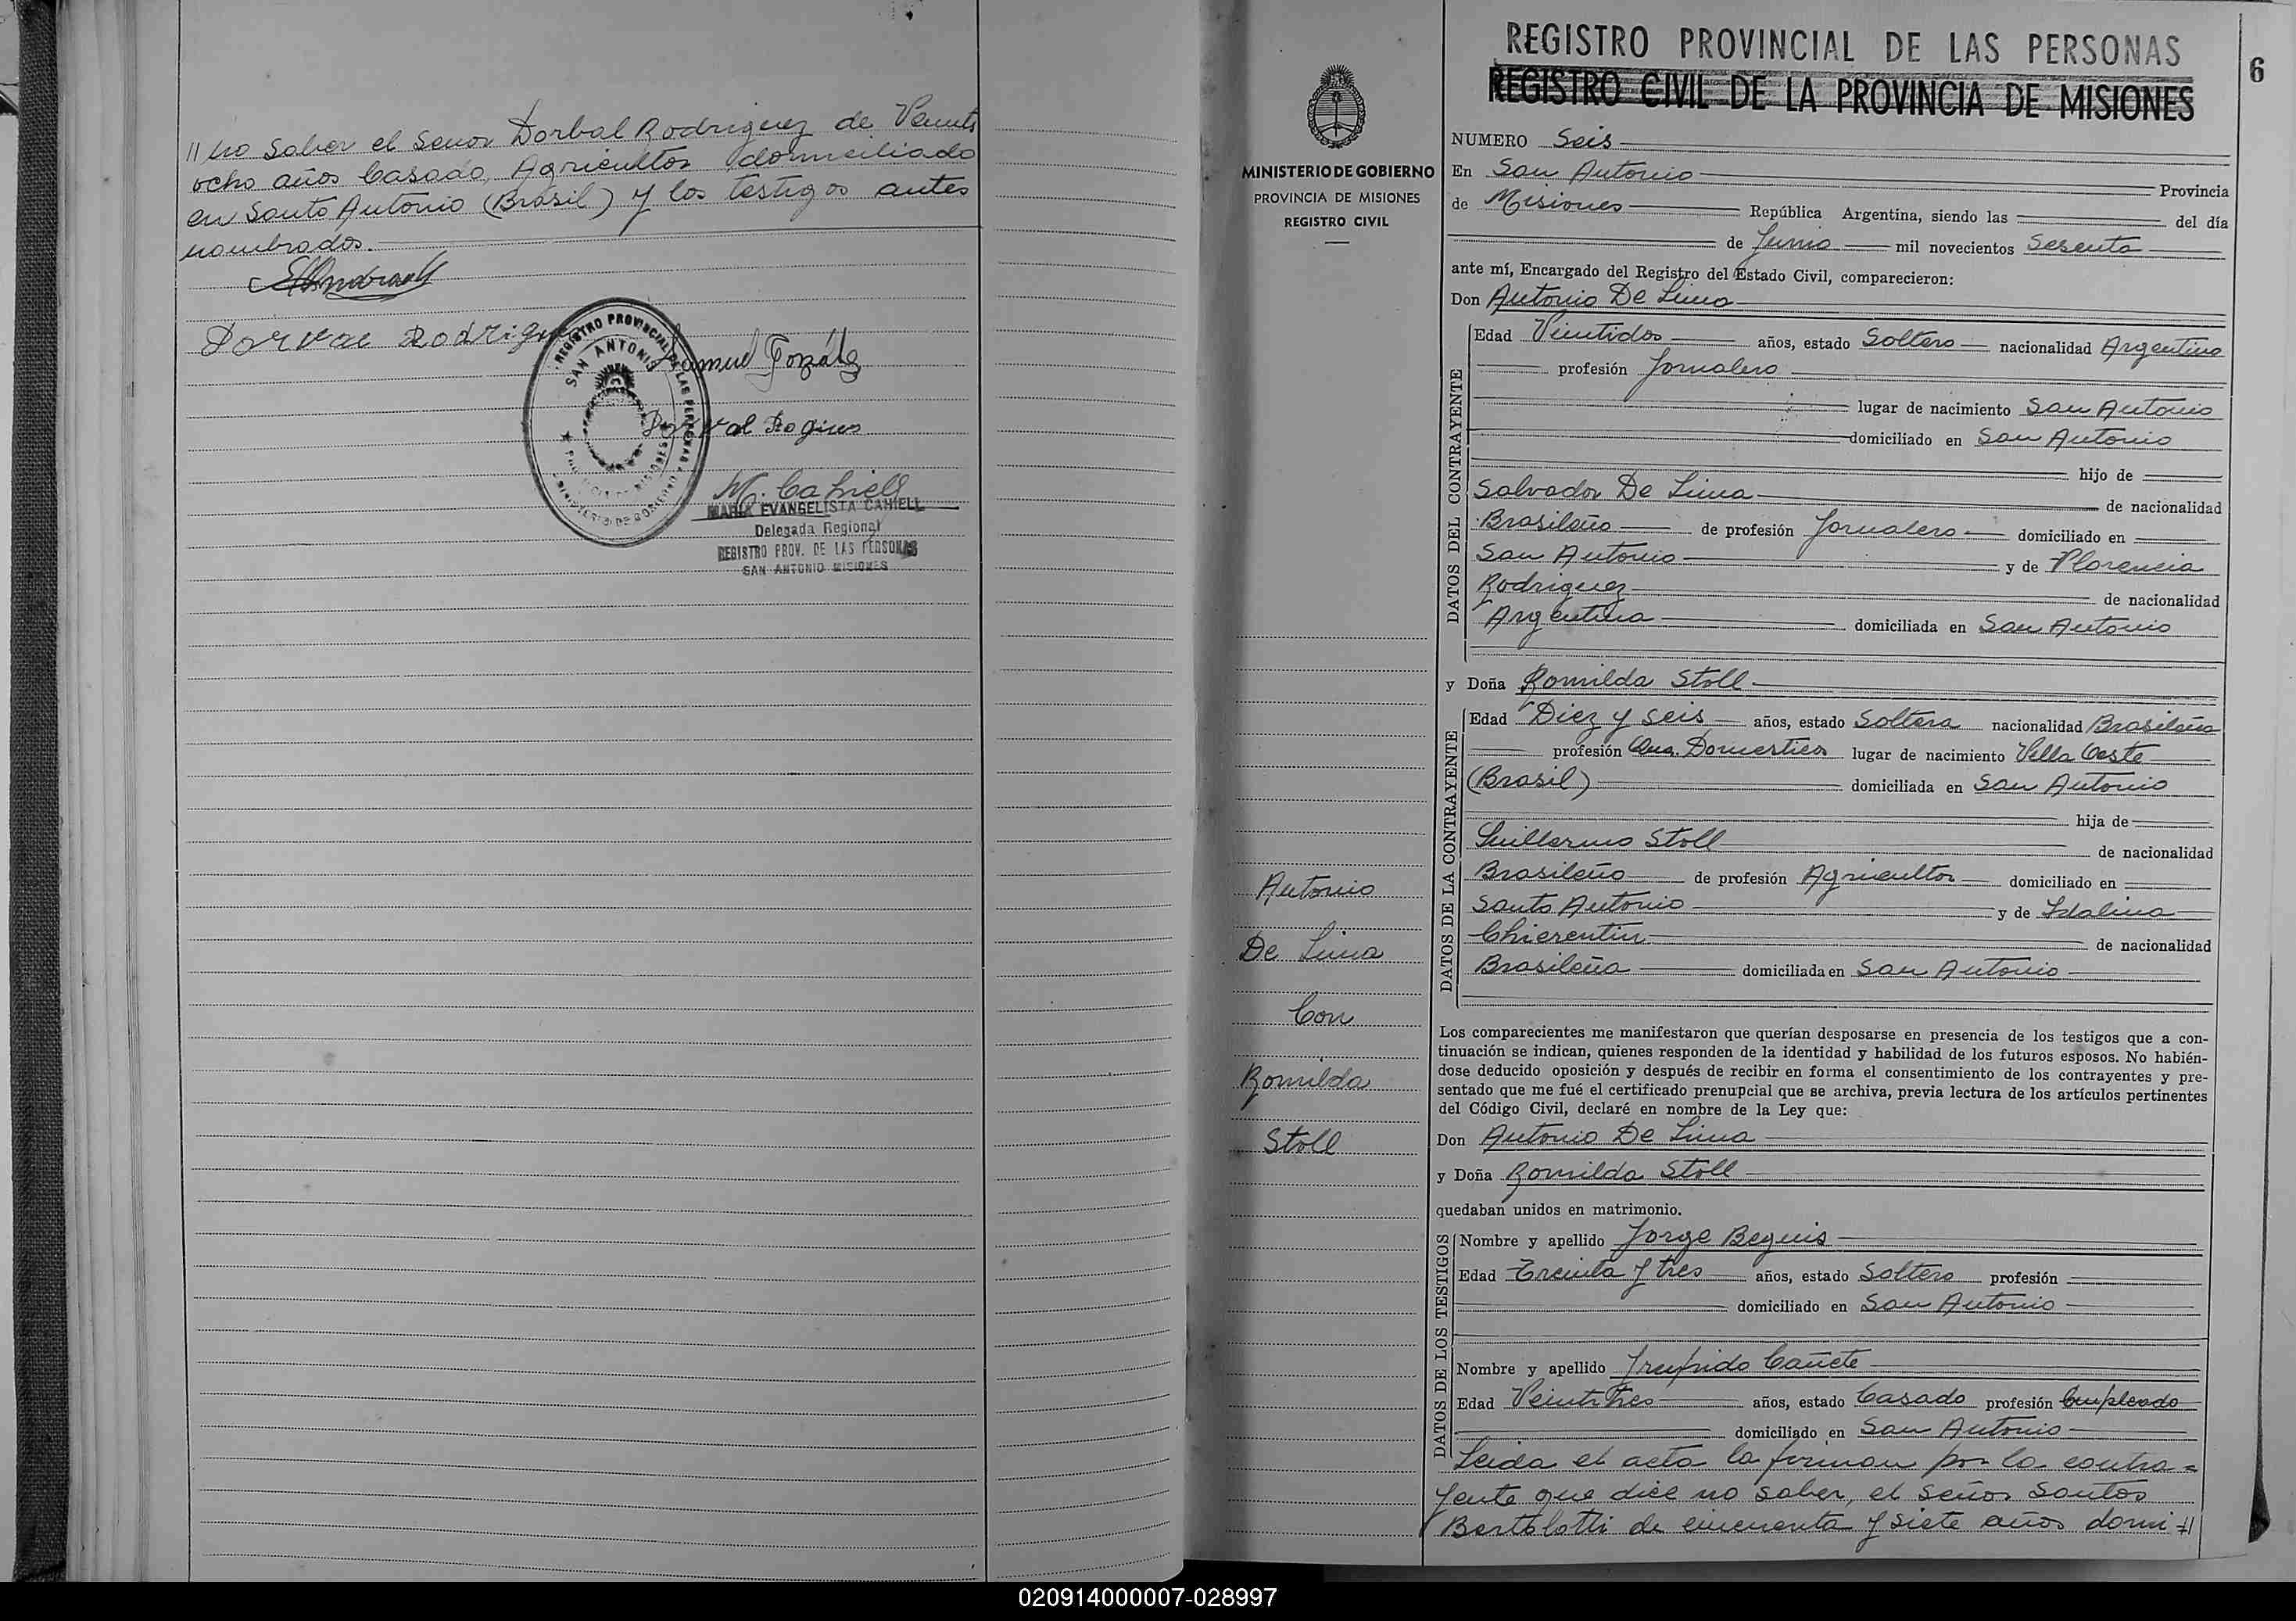 // no saber el señor Dorbal Rodriguez de Veinti
ocho años Casado, Agricultor domiciliado
en Santo Antonio (Brasil) y los testigos antes
nombrados.
Dorval Rodrigu
Samuel Gonzále
Dorval
M. Cahiell
MARIA EVANGELISTA CAHIELL
Delegada Regional
REGISTRO PROV. DE LAS PERSONAS
SAN ANTONIO MISIONES
REGISTRO PROVINCIAL DE LAS PERSONAS
SAN ANTONIO
MINISTERIO DE GOBIERNO
MINISTERIO DE GOBIERNO
PROVINCIA DE MISIONES
REGISTRO CIVIL
Antonio
De Lima
Con
Romilda
Stoll
REGISTRO PROVINCIAL DE LAS PERSONAS
REGISTRO CIVIL DE LA PROVINCIA DE MISIONES
6
NUMERO Seis
En San Antonio Provincia
de Misiones República Argentina, siendo las del día
de Junio mil novecientos Sesenta
ante mí, Encargado del Registro del Estado Civil, comparecieron:
Don Antonio De Lima
DATOS DEL CONTRAYENTE
Edad Veintidos años, estado Soltero nacionalidad Argentino
profesión Jornalero
lugar de nacimiento San Antonio
domiciliado en San Antonio
hijo de
Salvador De Lima de nacionalidad
Brasileño de profesión Jornalero domiciliado en
San Antonio y de Florencia
Rodriguez de nacionalidad
Argentina domiciliada en San Antonio
y Doña Romilda Stoll
DATOS DE LA CONTRAYENTE
Edad Diez y seis años, estado Soltera nacionalidad Brasileña
profesión Que. Domesticos lugar de nacimiento Villa Oeste
(Brasil) domiciliada en San Antonio
hija de
Guillermo Stoll de nacionalidad
Brasileño de profesión Agricultor domiciliado en
Santo Antonio y de Idalina
Chierentin de nacionalidad
Brasileña domiciliada en San Antonio
Los comparecientes me manifestaron que querían desposarse en presencia de los testigos que a con-
tinuación se indican, quienes responden de la identidad y habilidad de los futuros esposos. No habién-
dose deducido oposición y después de recibir en forma el consentimiento de los contrayentes y pre-
sentado que me fué el certificado prenupcial que se archiva, previa lectura de los artículos pertinentes
del Código Civil, declaré en nombre de la Ley que:
Don Antonio De Lima
y Doña Romilda Stoll
quedaban unidos en matrimonio.
DATOS DE LOS TESTIGOS
Nombre y apellido Jorge Beguis
Edad Treinta y tres años, estado Soltero profesión
domiciliado en San Antonio
Nombre y apellido Cañete
Edad Veintitres años, estado Casado profesión Empleado
domiciliado en San Antonio
Leida el acta la firman por la contra=
yente que dice no saber, el señor Santos
Bertolotti de cincuenta y siete años domi //
020914000007-028997